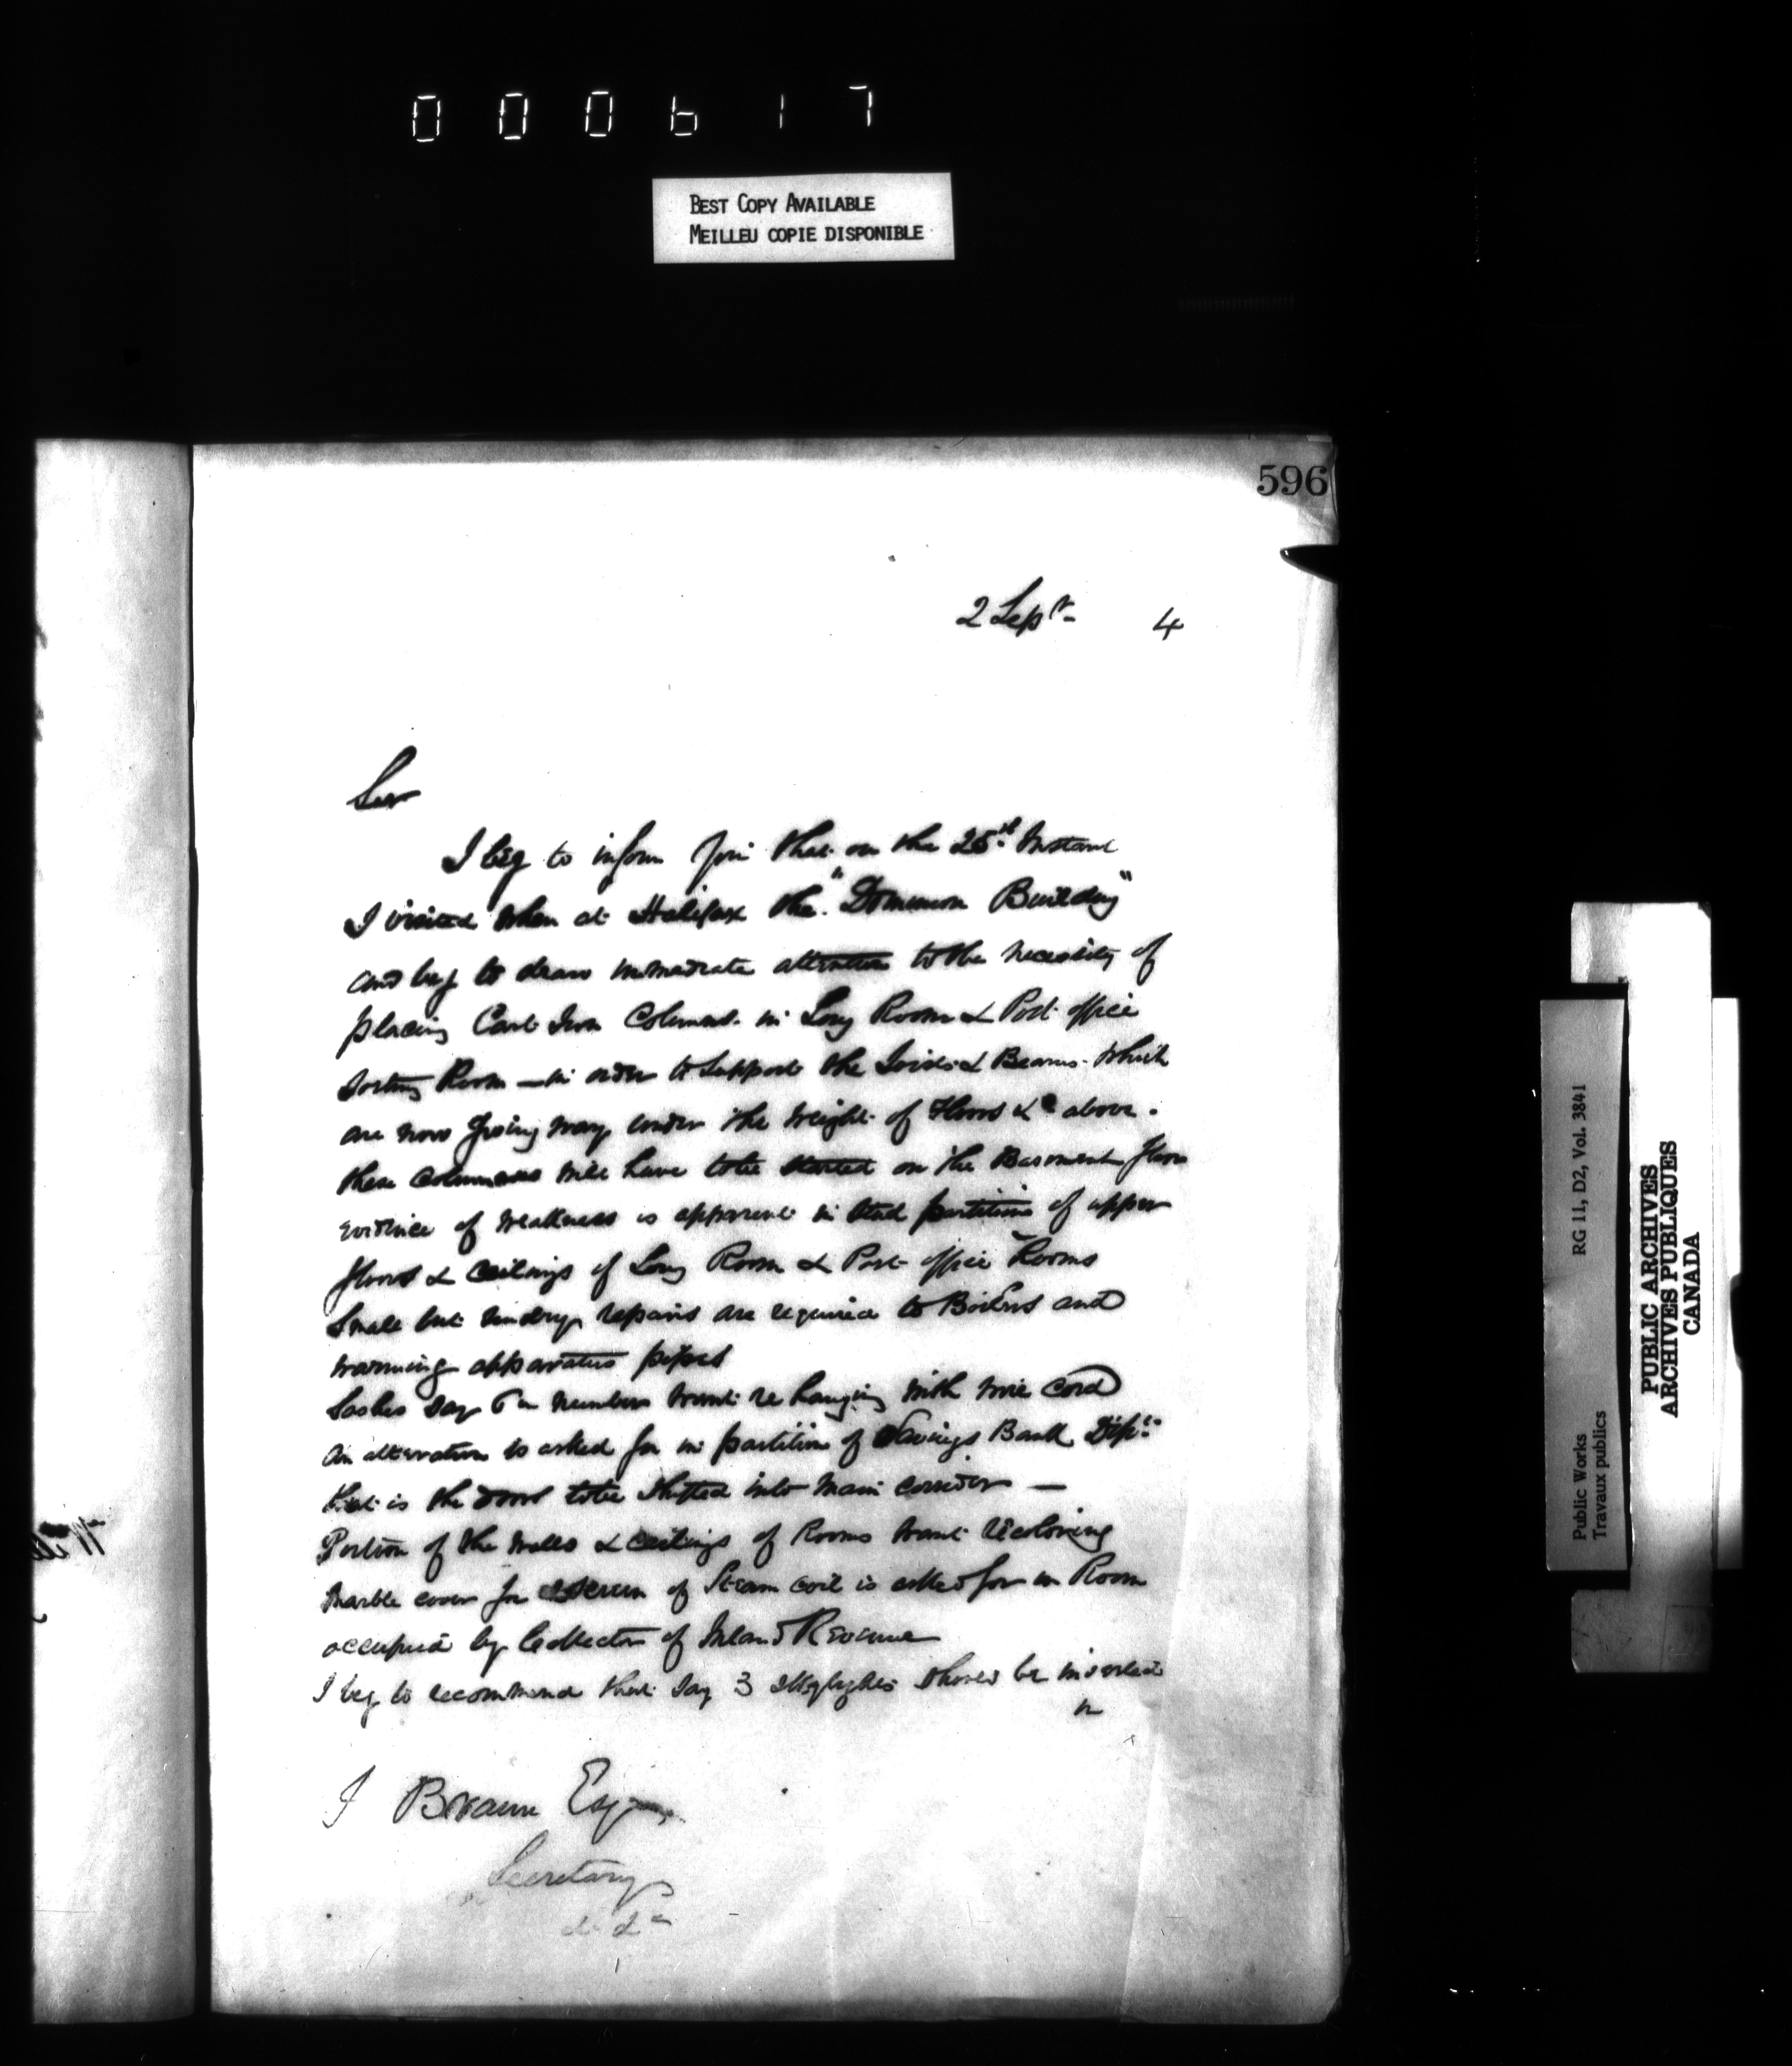 000617
BEST COPY AVAILABLE
MEILLEU COPIE DISPONIBLE
596
2 Sept. 4
Sir
I beg to inform you that on the 25th Instant
I visited when at Halifax the "Dominion Building"
and beg to draw immediate attention to the necessity of
placing Cast Iron Columns in Long Room & Post office
Sorting Room — in order to support the Joists & Beams which
are now giving way under the weight of Floors &c above.
these columns will have to be started on the Basement floor
evidence of weakness is apparent in stud partitions of upper
floors & ceilings of Long Room & Post office Rooms
Small but sundry repairs are required to Boilers and
warming apparatus pipes
Sashes say 6 in number want re hanging with wire cord
An alteration is asked for in partition of Savings Bank Dept.
that is the door to be shifted into main corridor —
Portion of the walls & ceilings of Rooms want recoloring
Marble cover for screen of Steam coil is asked for in Room
occupied by Collector of Inland Revenue
I beg to recommend that say 3 skylights should be inserted
in
Braun Esq
Secretary
RG 11, D2, Vol. 3841
Public Works
Travaux publics
PUBLIC ARCHIVES
ARCHIVES PUBLIQUES
CANADA